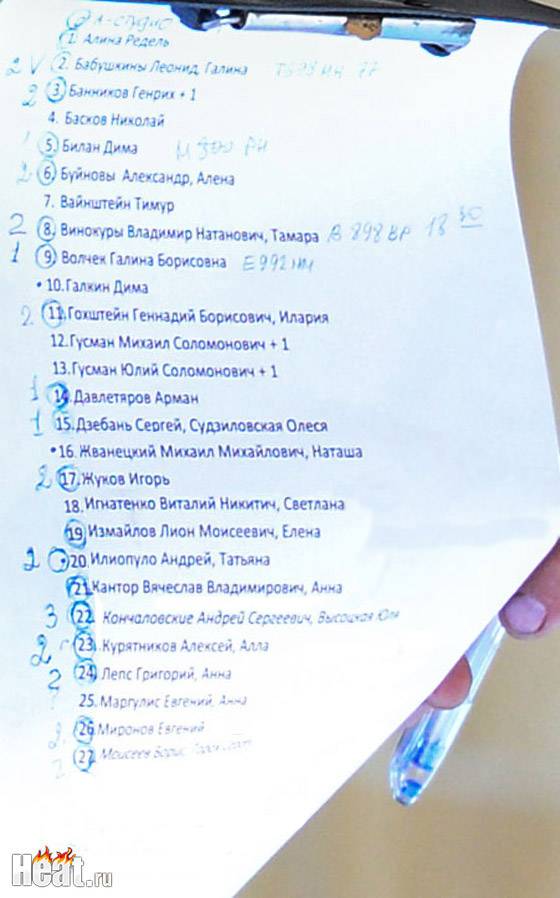 А-студио
1. Алина Редель
2 V 2. Бабушкины Леонид, Галина
2 3. Банников Генрих + 1
4. Басков Николай
1 5. Билан Дима М 300 РН
2 6. Буйновы Александр, Алена
7. Вайнштейн Тимур
2 8. Винокуры Владимир Натанович, Тамара В 898 ВР 18 30
1 9. Волчек Галина Борисовна Е992
• 10. Галкин Дима
2 11. Гохштейн Геннадий Борисович, Илария
12. Гусман Михаил Соломонович + 1
13. Гусман Юлий Соломонович + 1
1 14. Давлетяров Арман
1 15. Дзебань Сергей, Судзиловская Олеся
• 16. Жванецкий Михаил Михайлович, Наташа
2 17. Жуков Игорь
18. Игнатенко Виталий Никитич, Светлана
19. Измайлов Лион Моисеевич, Елена
2 • 20. Илиопуло Андрей, Татьяна
21. Кантор Вячеслав Владимирович, Анна
3 22. Кончаловские Андрей Сергеевич, Высоцкая Юля
2 23. Курятников Алексей, Алла
2 24. Лепс Григорий, Анна
25. Маргулис Евгений, Анна
2 26. Миронов Евгений
2 27. Моисеев Борис,
Heat.ru